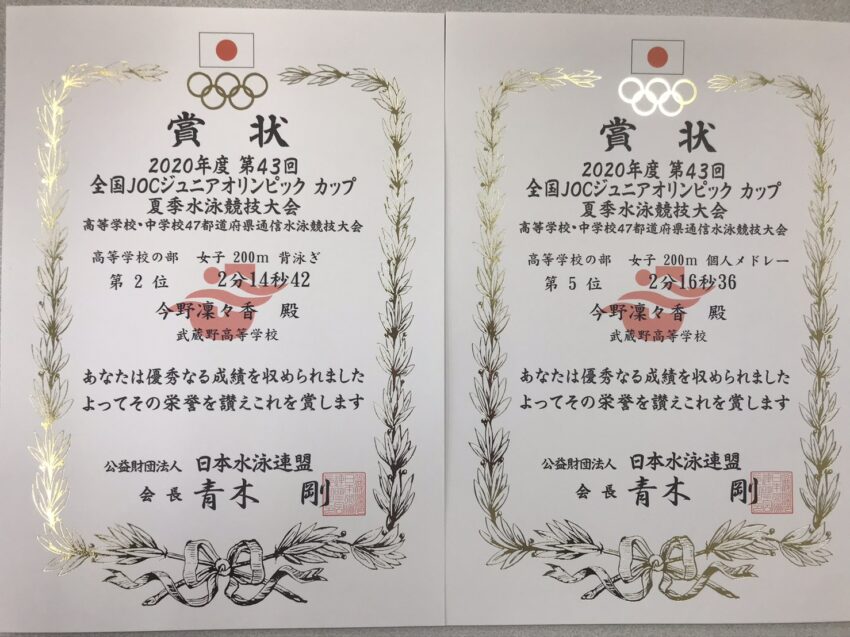 賞状
2020年度 第43回
全国JOCジュニアオリンピック カップ
夏季水泳競技大会
高等学校・中学校47都道府県通信水泳競技大会
高等学校の部 女子 200m 背泳ぎ
第 2 位 2分14秒42
今野凜々香 殿
武蔵野高等学校
あなたは優秀なる成績を収められました
よってその栄誉を讃えこれを賞します
公益財団法人 日本水泳連盟
会長 青木 剛
賞状
2020年度 第43回
全国JOCジュニアオリンピック カップ
夏季水泳競技大会
高等学校・中学校47都道府県通信水泳競技大会
高等学校の部 女子 200m 個人メドレー
第 5 位 2分16秒36
今野凜々香 殿
武蔵野高等学校
あなたは優秀なる成績を収められました
よってその栄誉を讃えこれを賞します
公益財団法人 日本水泳連盟
会長 青木 剛